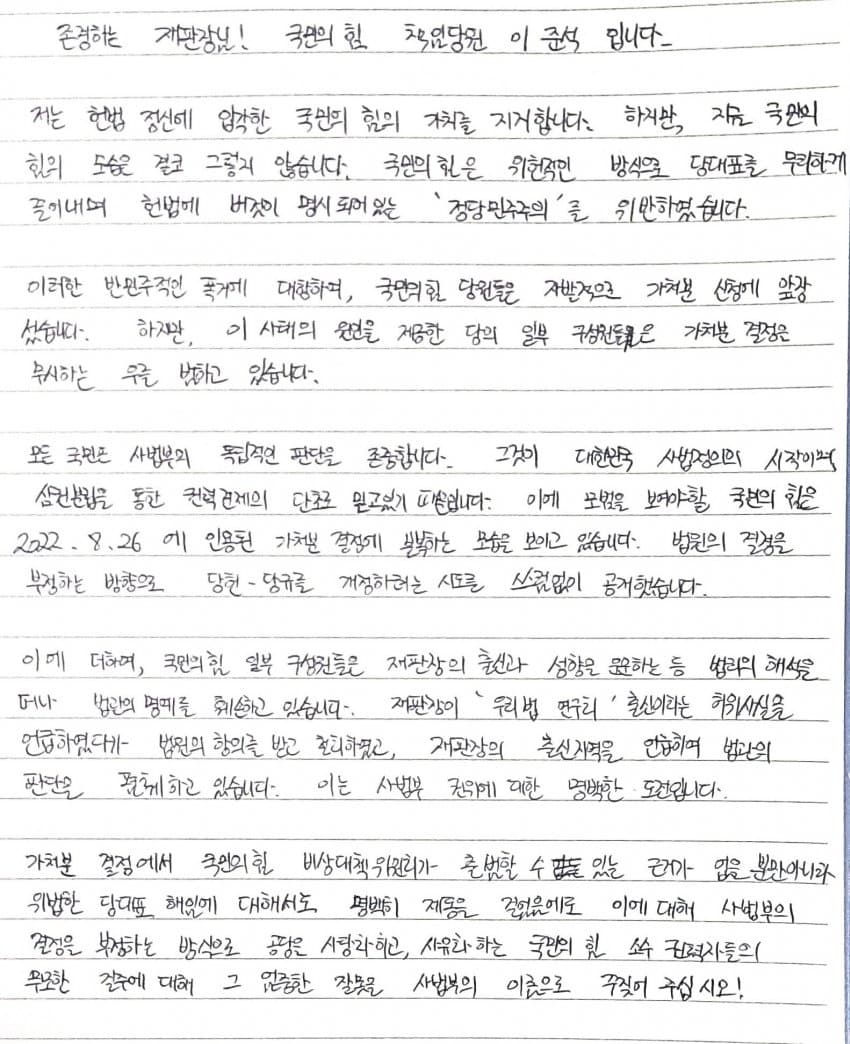 존경하는 재판장님! 국민의 힘 책임당원 이 준석 입니다.
저는 헌법 정신에 입각한 국민의 힘의 가치를 지지합니다. 하지만, 지금 국민의
힘의 모습은 결코 그렇지 않습니다. 국민의 힘은 위헌적인 방식으로 당대표를 무리하게
끌어내며 헌법에 버젓이 명시 되어 있는 '정당민주주의'를 위반하였습니다.
이러한 반민주적인 폭거에 대항하며, 국민의힘 당원들은 자발적으로 가처분 신청에 앞장
섰습니다. 하지만, 이 사태의 원인을 제공한 당의 일부 구성원들은 가처분 결정은
무시하는 우를 범하고 있습니다.
모든 국민은 사법부의 독립적인 판단을 존중합니다. 그것이 대한민국 사법정의의 시작이며,
삼권분립을 통한 권력견제의 단초로 믿고있기 때문입니다. 이에 모범을 보여야할 국민의 힘은
2022. 8. 26 에 인용된 가처분 결정에 불복하는 모습을 보이고 있습니다. 법원의 결정을
부정하는 방향으로 당헌-당규를 개정하려는 시도를 스스럼없이 공개했습니다.
이에 더하여, 국민의힘 일부 구성원들은 재판장의 출신과 성향을 운운하는 등 법리의 해석을
떠나 법관의 명예를 훼손하고 있습니다. 재판장이 '우리법 연구회' 출신이라는 허위사실을
언급하였다가 법원의 항의를 받고 철회하였고, 재판장의 출신지역을 언급하며 법관의
판단을 폄훼하고 있습니다. 이는 사법부 권위에 대한 명백한 도전입니다.
가처분 결정에서 국민의힘 비상대책위원회가 출범할 수 있는 근거가 없을 뿐만아니라
위법한 당대표 해임에 대해서도 명백히 제동을 걸었음에도 이에 대해 사법부의
결정을 부정하는 방식으로 공당을 사당화하고, 사유화 하는 국민의 힘 소수 권력자들의
무모한 질주에 대해 그 엄중한 잘못을 사법부의 이름으로 꾸짖어 주십시오!